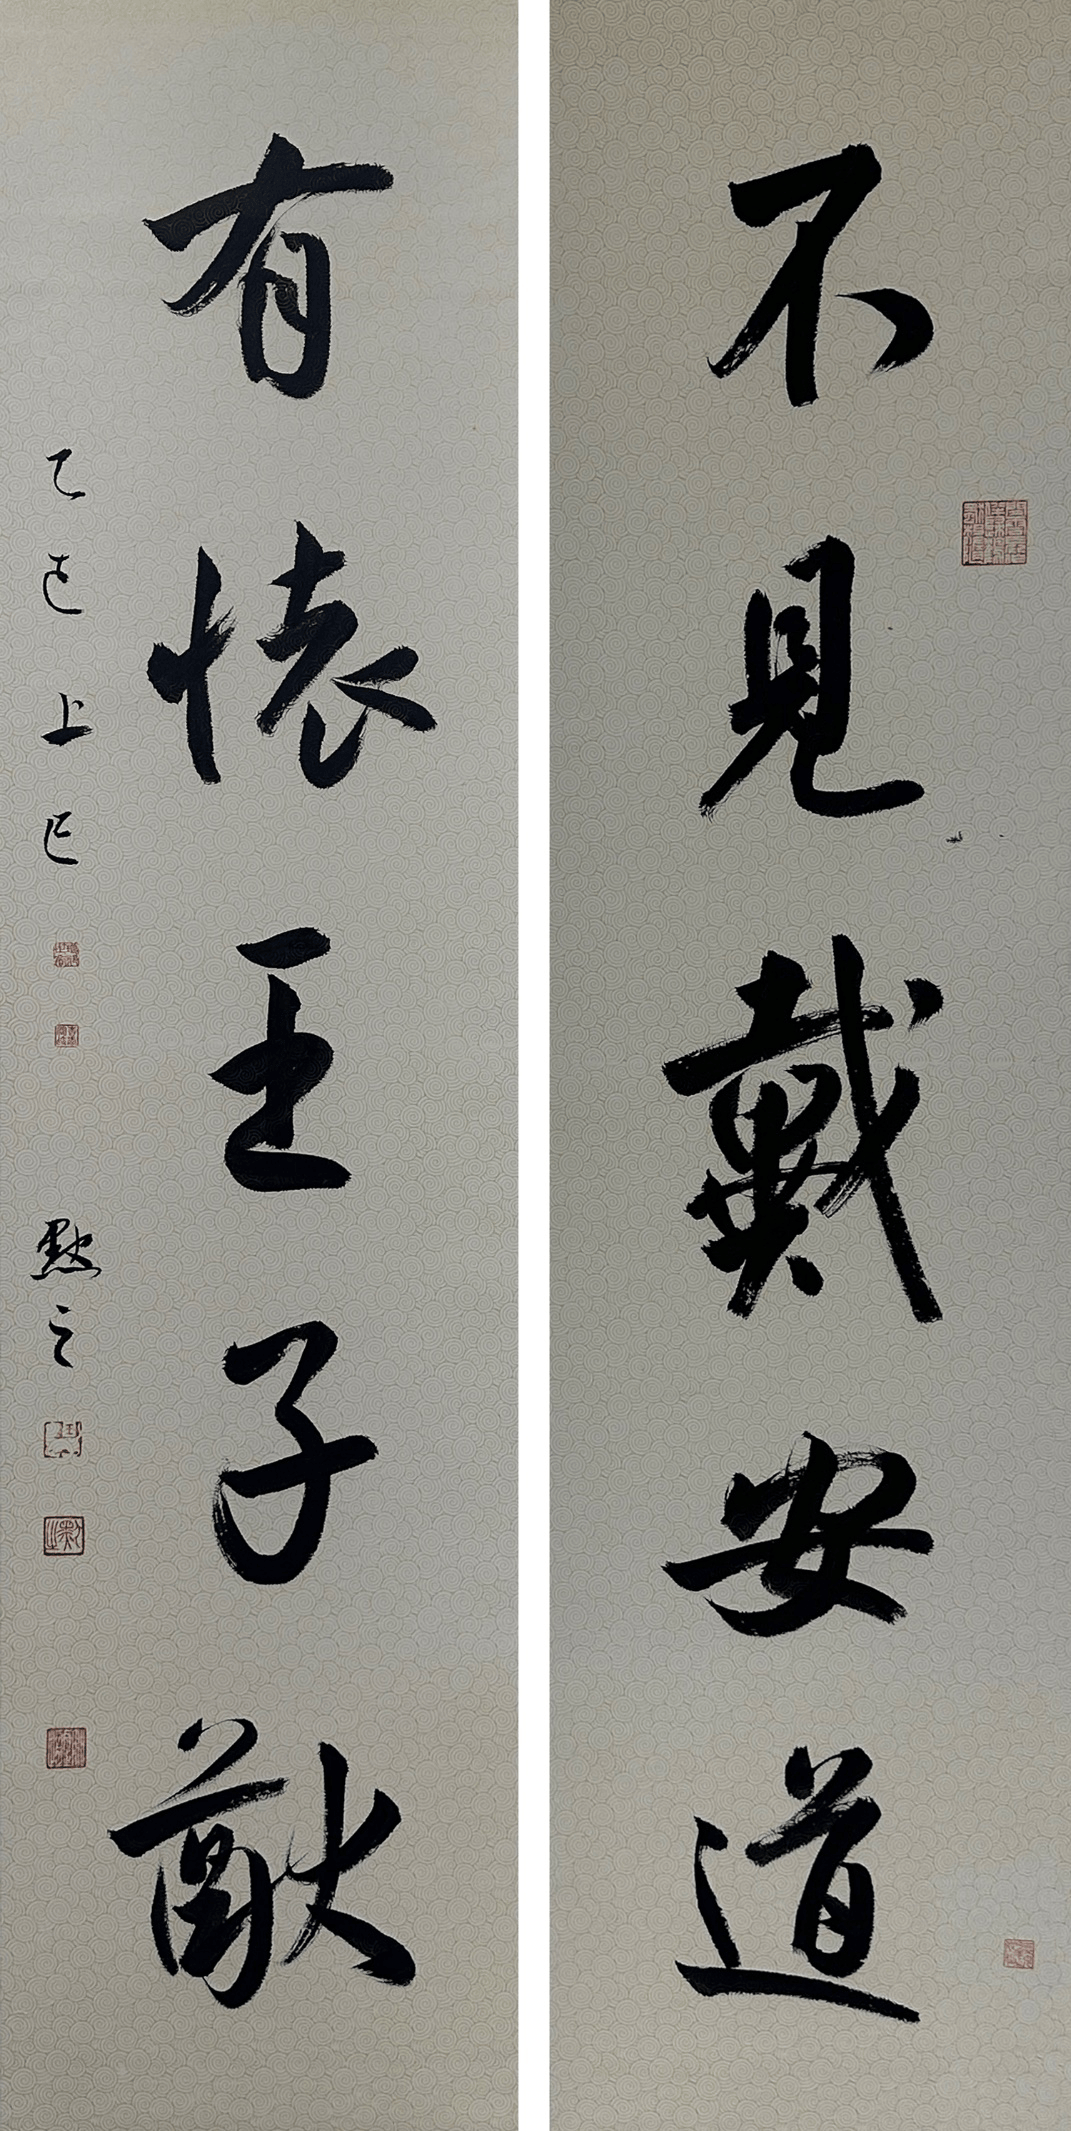 不見戴安道
有懐王子猷
乙巳上巳
默之